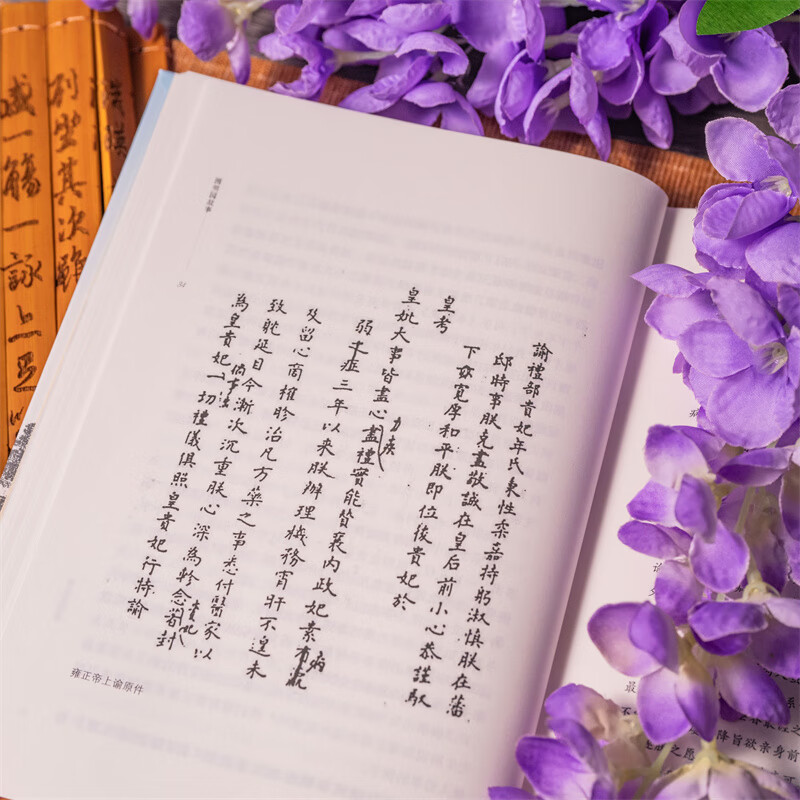 列坐其次雖
盛一觴一詠上
諭禮部貴妃年氏秉性柔嘉持躬淑慎朕在藩
邸時事朕克盡敬誠在皇后前小心恭謹馭
下寬厚和平朕即位後貴妃於
皇考
皇妣大事皆盡心力疾盡禮實能贊襄內政妃素病有
弱症三年以來朕辦理機務宵旰不遑未
及留心商榷胗治凡方藥之事悉付醫家以
致躭延目今漸次沉重朕心深為軫念貴妃著封
為皇貴妃一切禮儀俱照皇貴妃行特諭
雍正帝上谕原件
降旨欲亲身前
之愿